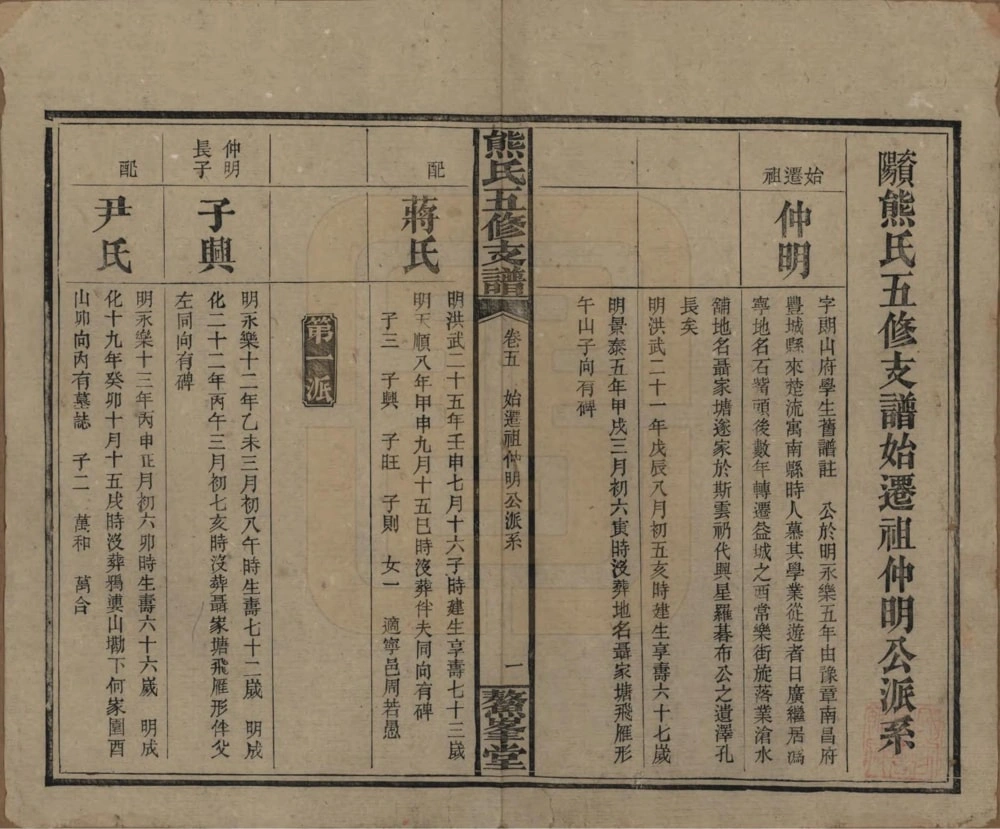 隤陽熊氏五修支譜始遷祖仲明公派系
始遷祖
仲明
字朗山府學生舊譜註　公於明永樂五年由豫章南昌府
豐城縣來楚流寓南縣時人慕其學業從遊者日廣繼居溈
寧地名石觜頭後數年轉遷益城之西常樂街旋落業滄水
舖地名聶家塘遂家於斯雲礽代興星羅碁布公之遺澤孔
長矣
明洪武二十一年戊辰八月初五亥時建生享壽六十七歲
明景泰五年甲戌三月初六寅時沒葬地名聶家塘飛雁形
午山子向有碑
熊氏五修支譜
卷五　始遷祖仲明公派系
一
鰲峯堂
配
蔣氏
明洪武二十五年壬申七月十六子時建生享壽七十三歲
明天順八年甲申九月十五巳時沒葬伴夫同向有碑
子三　子興　子旺　子則　女一　適寧邑周若愚
第　派
仲明
長子
子興
明永樂十二年乙未三月初八午時生壽七十二歲　明成
化二十二年丙午三月初七亥時沒葬聶家塘飛雁形伴父
左同向有碑
配
尹氏
明永樂十三年丙申正月初六卯時生壽六十六歲　明成
化十九年癸卯十月十五戌時沒葬鴉山坳下何家園酉
山卯向內有墓誌　子二　萬和　萬合